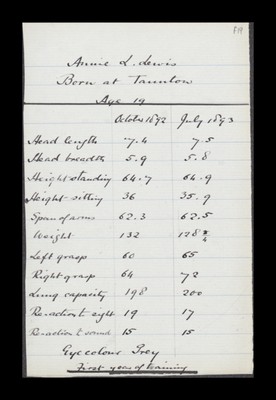 Annie L. Lewis
Born at Taunton
Age 19
October 1892 July 1893
Head length 7.4 7.5
Head breadth 5.9 5.8
Height standing 64.7 64.9
Height sitting 36 35.9
Span of arms 62.3 62.5
Weight 132 128 3/4
Left grasp 60 65
Right grasp 64 72
Lung capacity 198 200
Re-action to sight 19 17
Re-action to sound 15 15
Eye colour Grey
First year of training